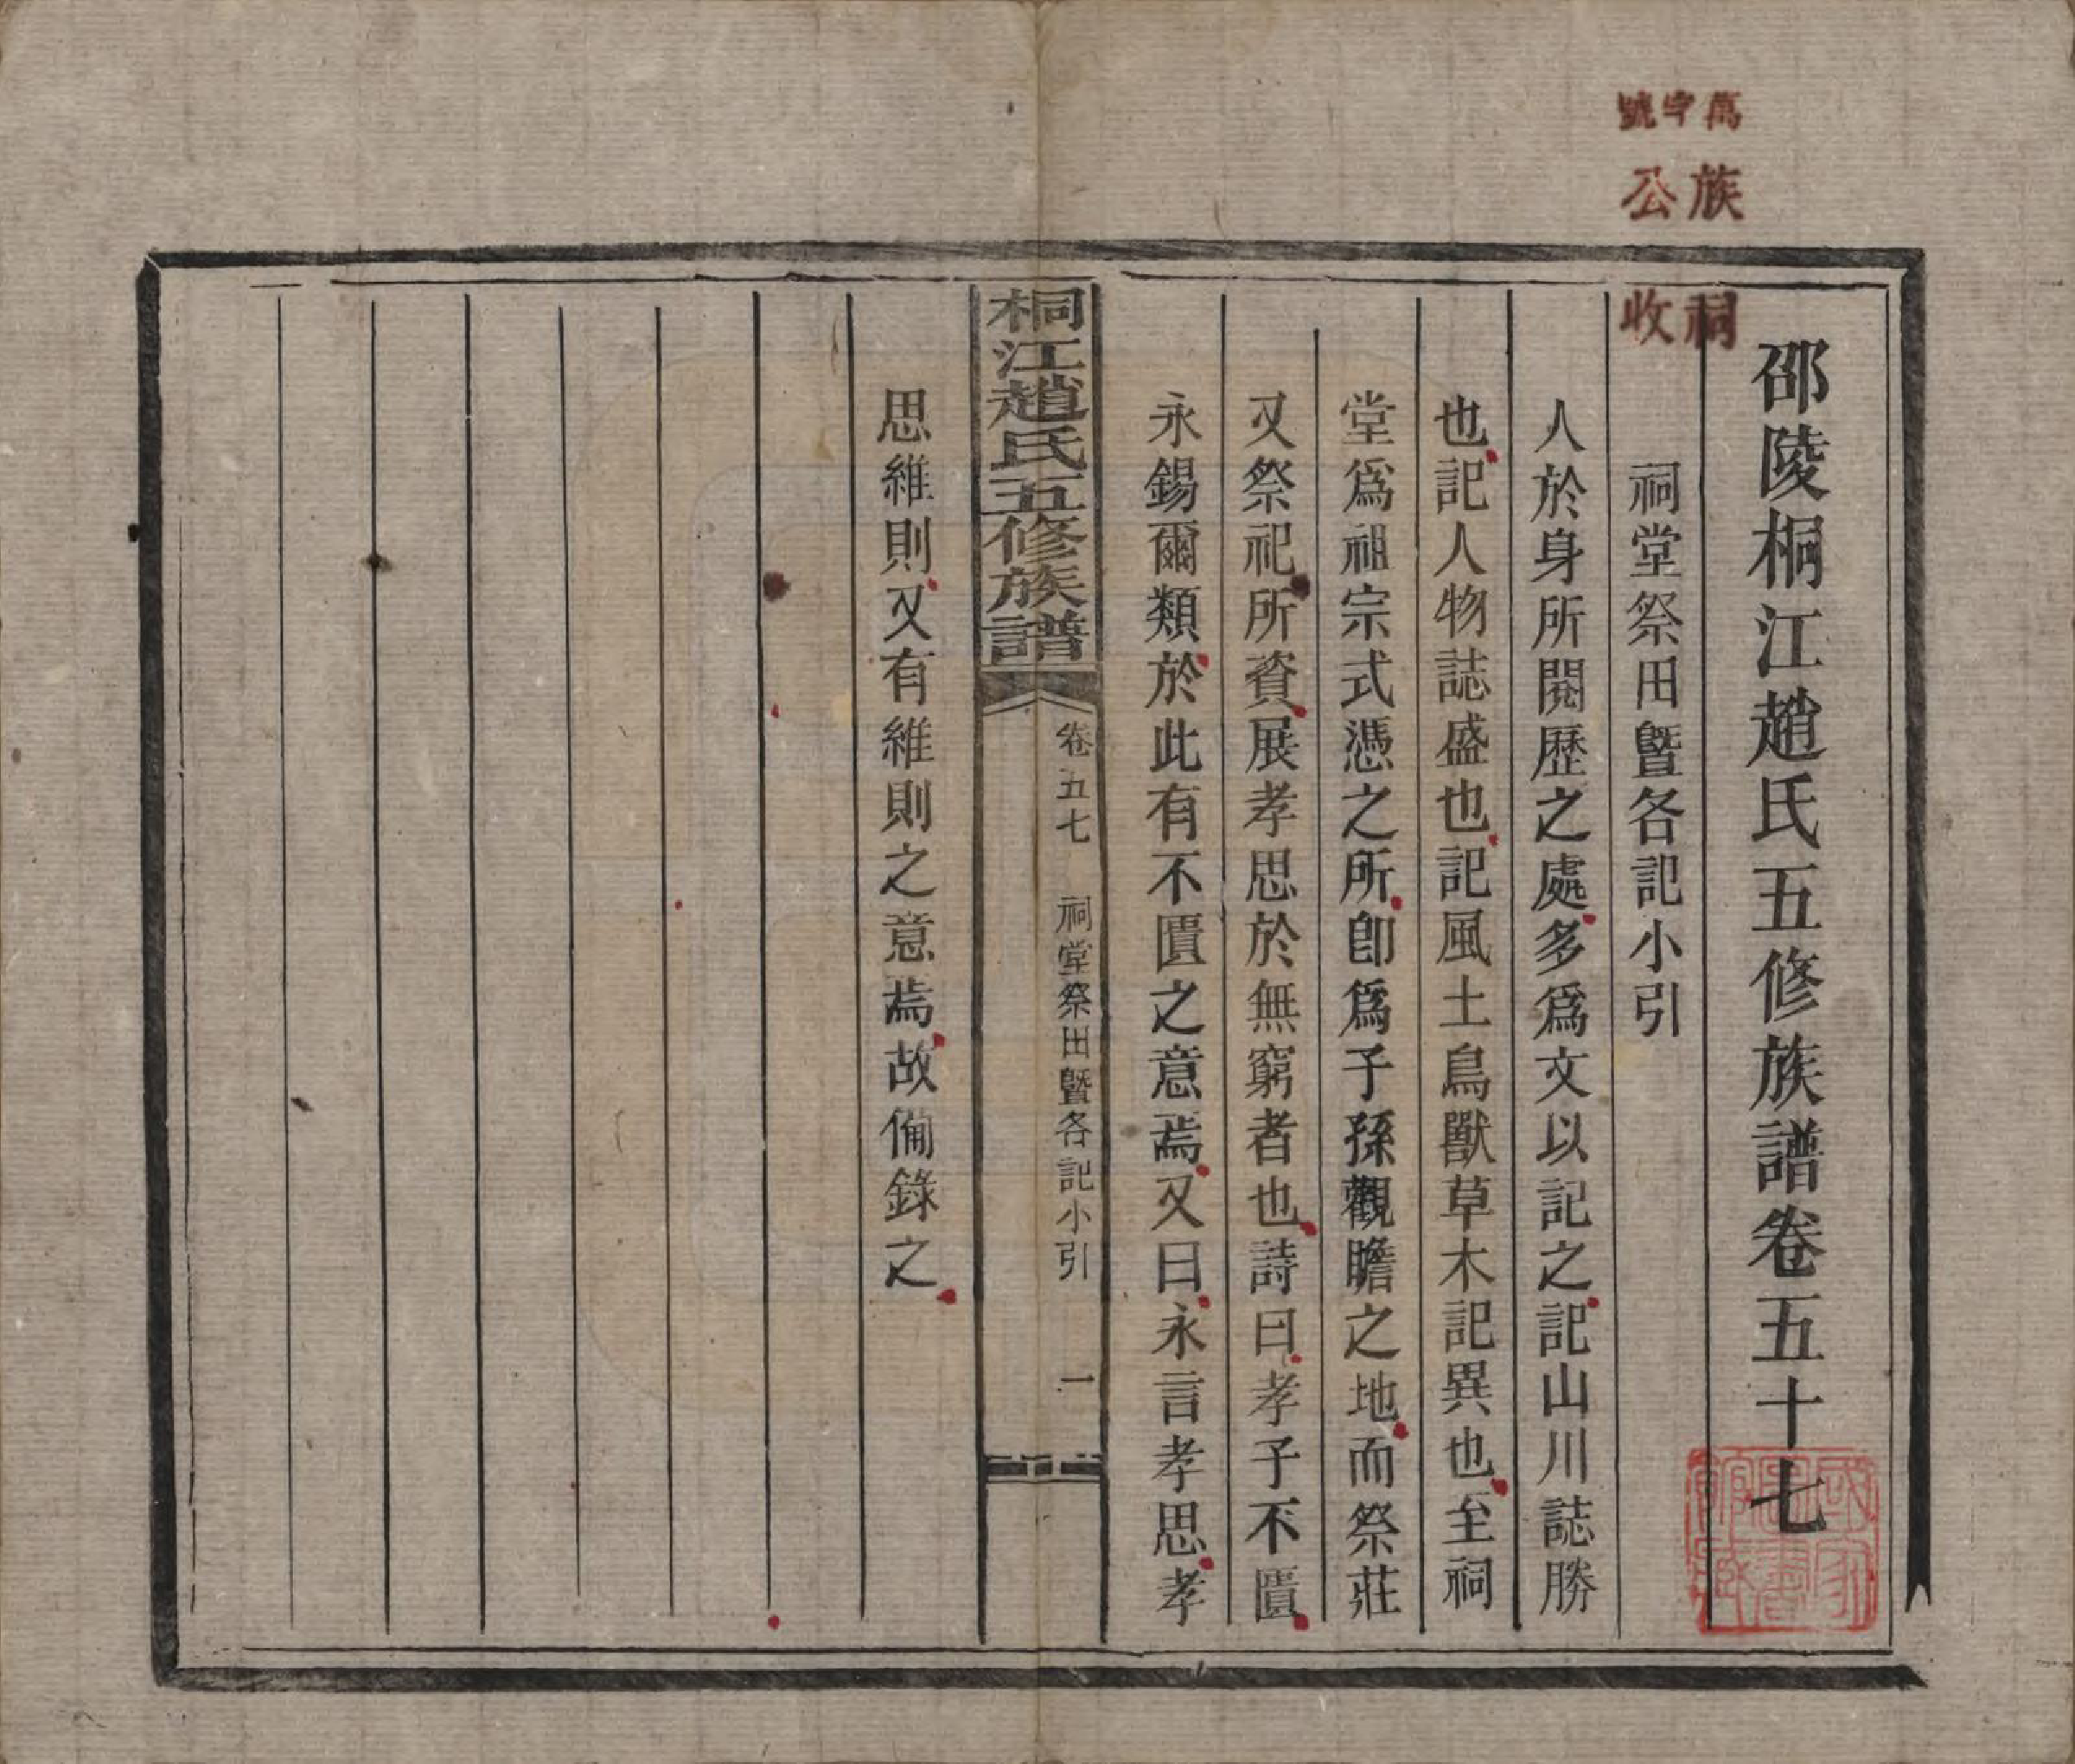 萬字號
族公
祠收
邵陵桐江趙氏五修族譜卷五十七
祠堂祭田曁各記小引
人於身所閱歷之處多爲文以記之記山川誌勝
也記人物誌盛也記風土鳥獸草木記異也至祠
堂爲祖宗式憑之所卽爲子孫觀瞻之地而祭莊
又祭祀所資展孝思於無窮者也詩曰孝子不匱
永錫爾類於此有不匱之意焉又曰永言孝思孝
桐江趙氏五修族譜
卷五七
祠堂祭田曁各記小引
一
思維則又有維則之意焉故備錄之
國家圖書館藏